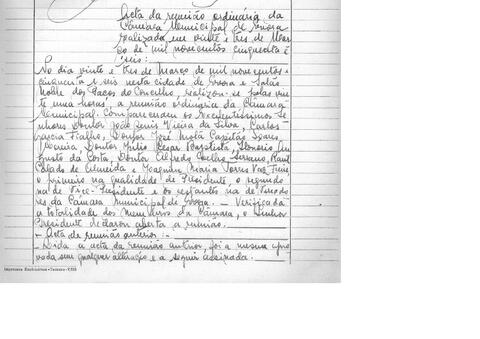 Acta da reunião ordinária da
Câmara Municipal de Évora
realizada em vinte e três de Mar
ço de mil novecentos cinquenta e
seis:
No dia vinte e três de Março de mil novecentos e
cinquenta e seis nesta cidade de Évora e Salão
Nobre dos Paços do Concelho, realizou-se pelas vin
te uma horas, a reunião ordinária da Câmara
Municipal. Compareceram os Excelentíssimos Se
nhores Doutor João Luís Vieira da Silva, Carlos
Garcia Fialho, Doutor José Mota Capitão Soares
Moreira, Doutor Júlio Cesar Baptista, Honorio Au
gusto da Costa, Doutor Alfredo Coelho Serrano, Raul
Calado de Almeida e Joaquim Maria Torres Vaz Freire
o primeiro na qualidade de Presidente o segundo
na de Vice-Presidente e os restantes na de Vereado
res da Câmara Municipal de Évora. - Verificada
a totalidade dos membros da Câmara, o Senhor
Presidente declarou aberta a reunião.
- Acta da reunião anterior: -
- Lida a acta da reunião anterior, foi a mesma apro
vada sem qualquer alteração e a seguir assinada. -